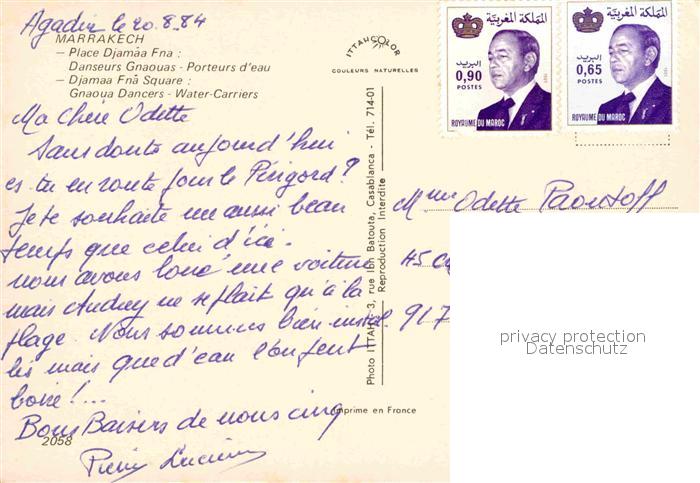 Agadir le 20.8.84
MARRAKECH
— Place Djamâa Fna :
Danseurs Gnaouas - Porteurs d'eau
— Djamaa Fnâ Square :
Gnaoua Dancers - Water-Carriers
Ma Chère Odette
Sans doute aujourd'hui
es-tu en route pour le Périgord ?
Je te souhaite un aussi beau
temps que celui d'ici.
nous avons loué une voiture
mais Audrey ne se plait qu'à la
plage. Nous sommes bien instal-
lés mais que d'eau l'on peut
boire !...
Bons Baisers de nous cinq
2058
ITTAHCOLOR
COULEURS NATURELLES
Photo ITTAH - 3, rue Ibn Batouta, Casablanca - Tél. 714-01
Reproduction Interdite
Imprime en France
المملكة المغربية
البريد
0,90
POSTES
ROYAUME DU MAROC
المملكة المغربية
البريد
0,65
POSTES
ROYAUME DU MAROC
Mme Odette
45
917
privacy protection
Datenschutz